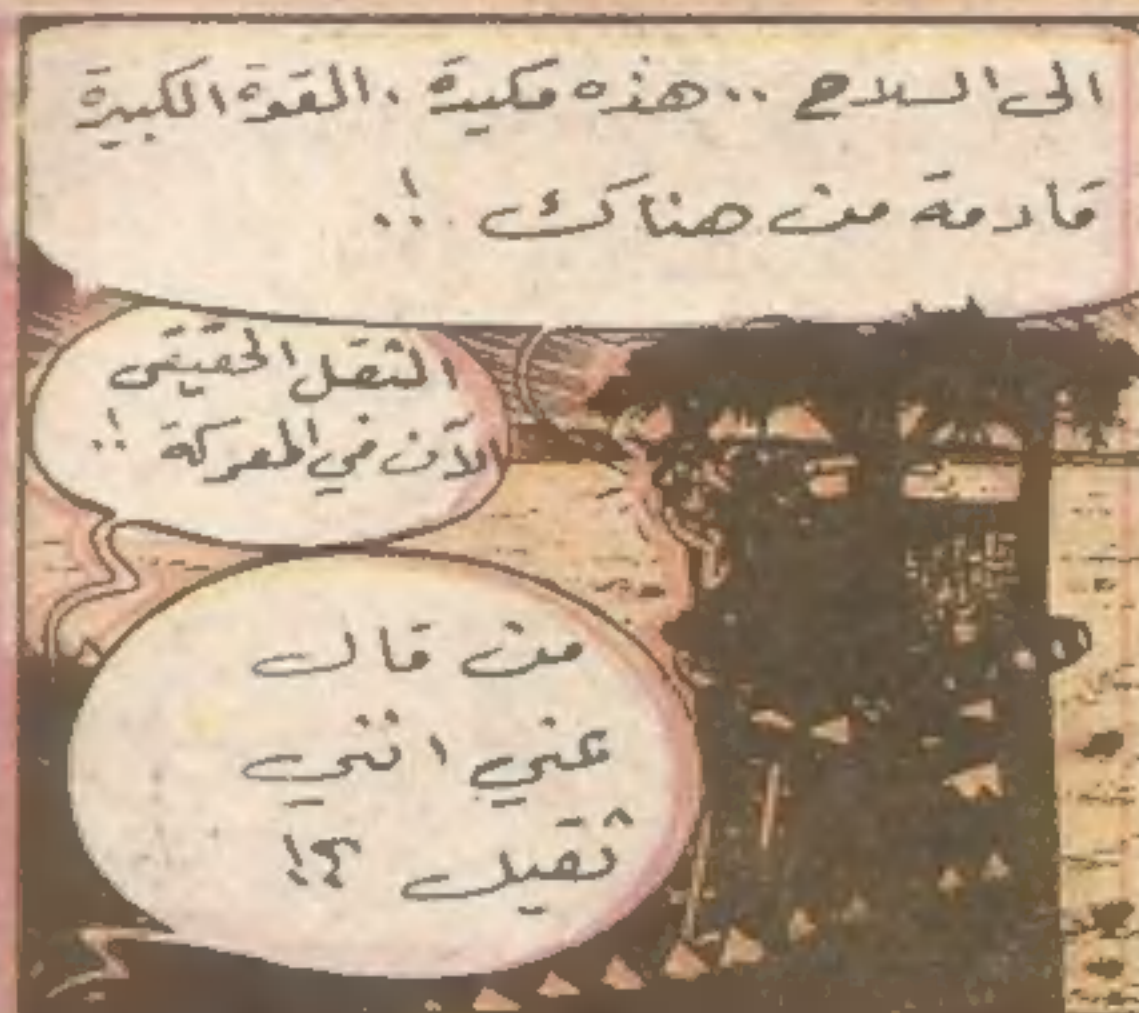 الى السلاح .. هذه مكيدة . القوة الكبيرة
قادمة من هناك !.
الثقل الحقيقي
الآن في المعركة !.
من قال
عني انني
ثقيل ؟!